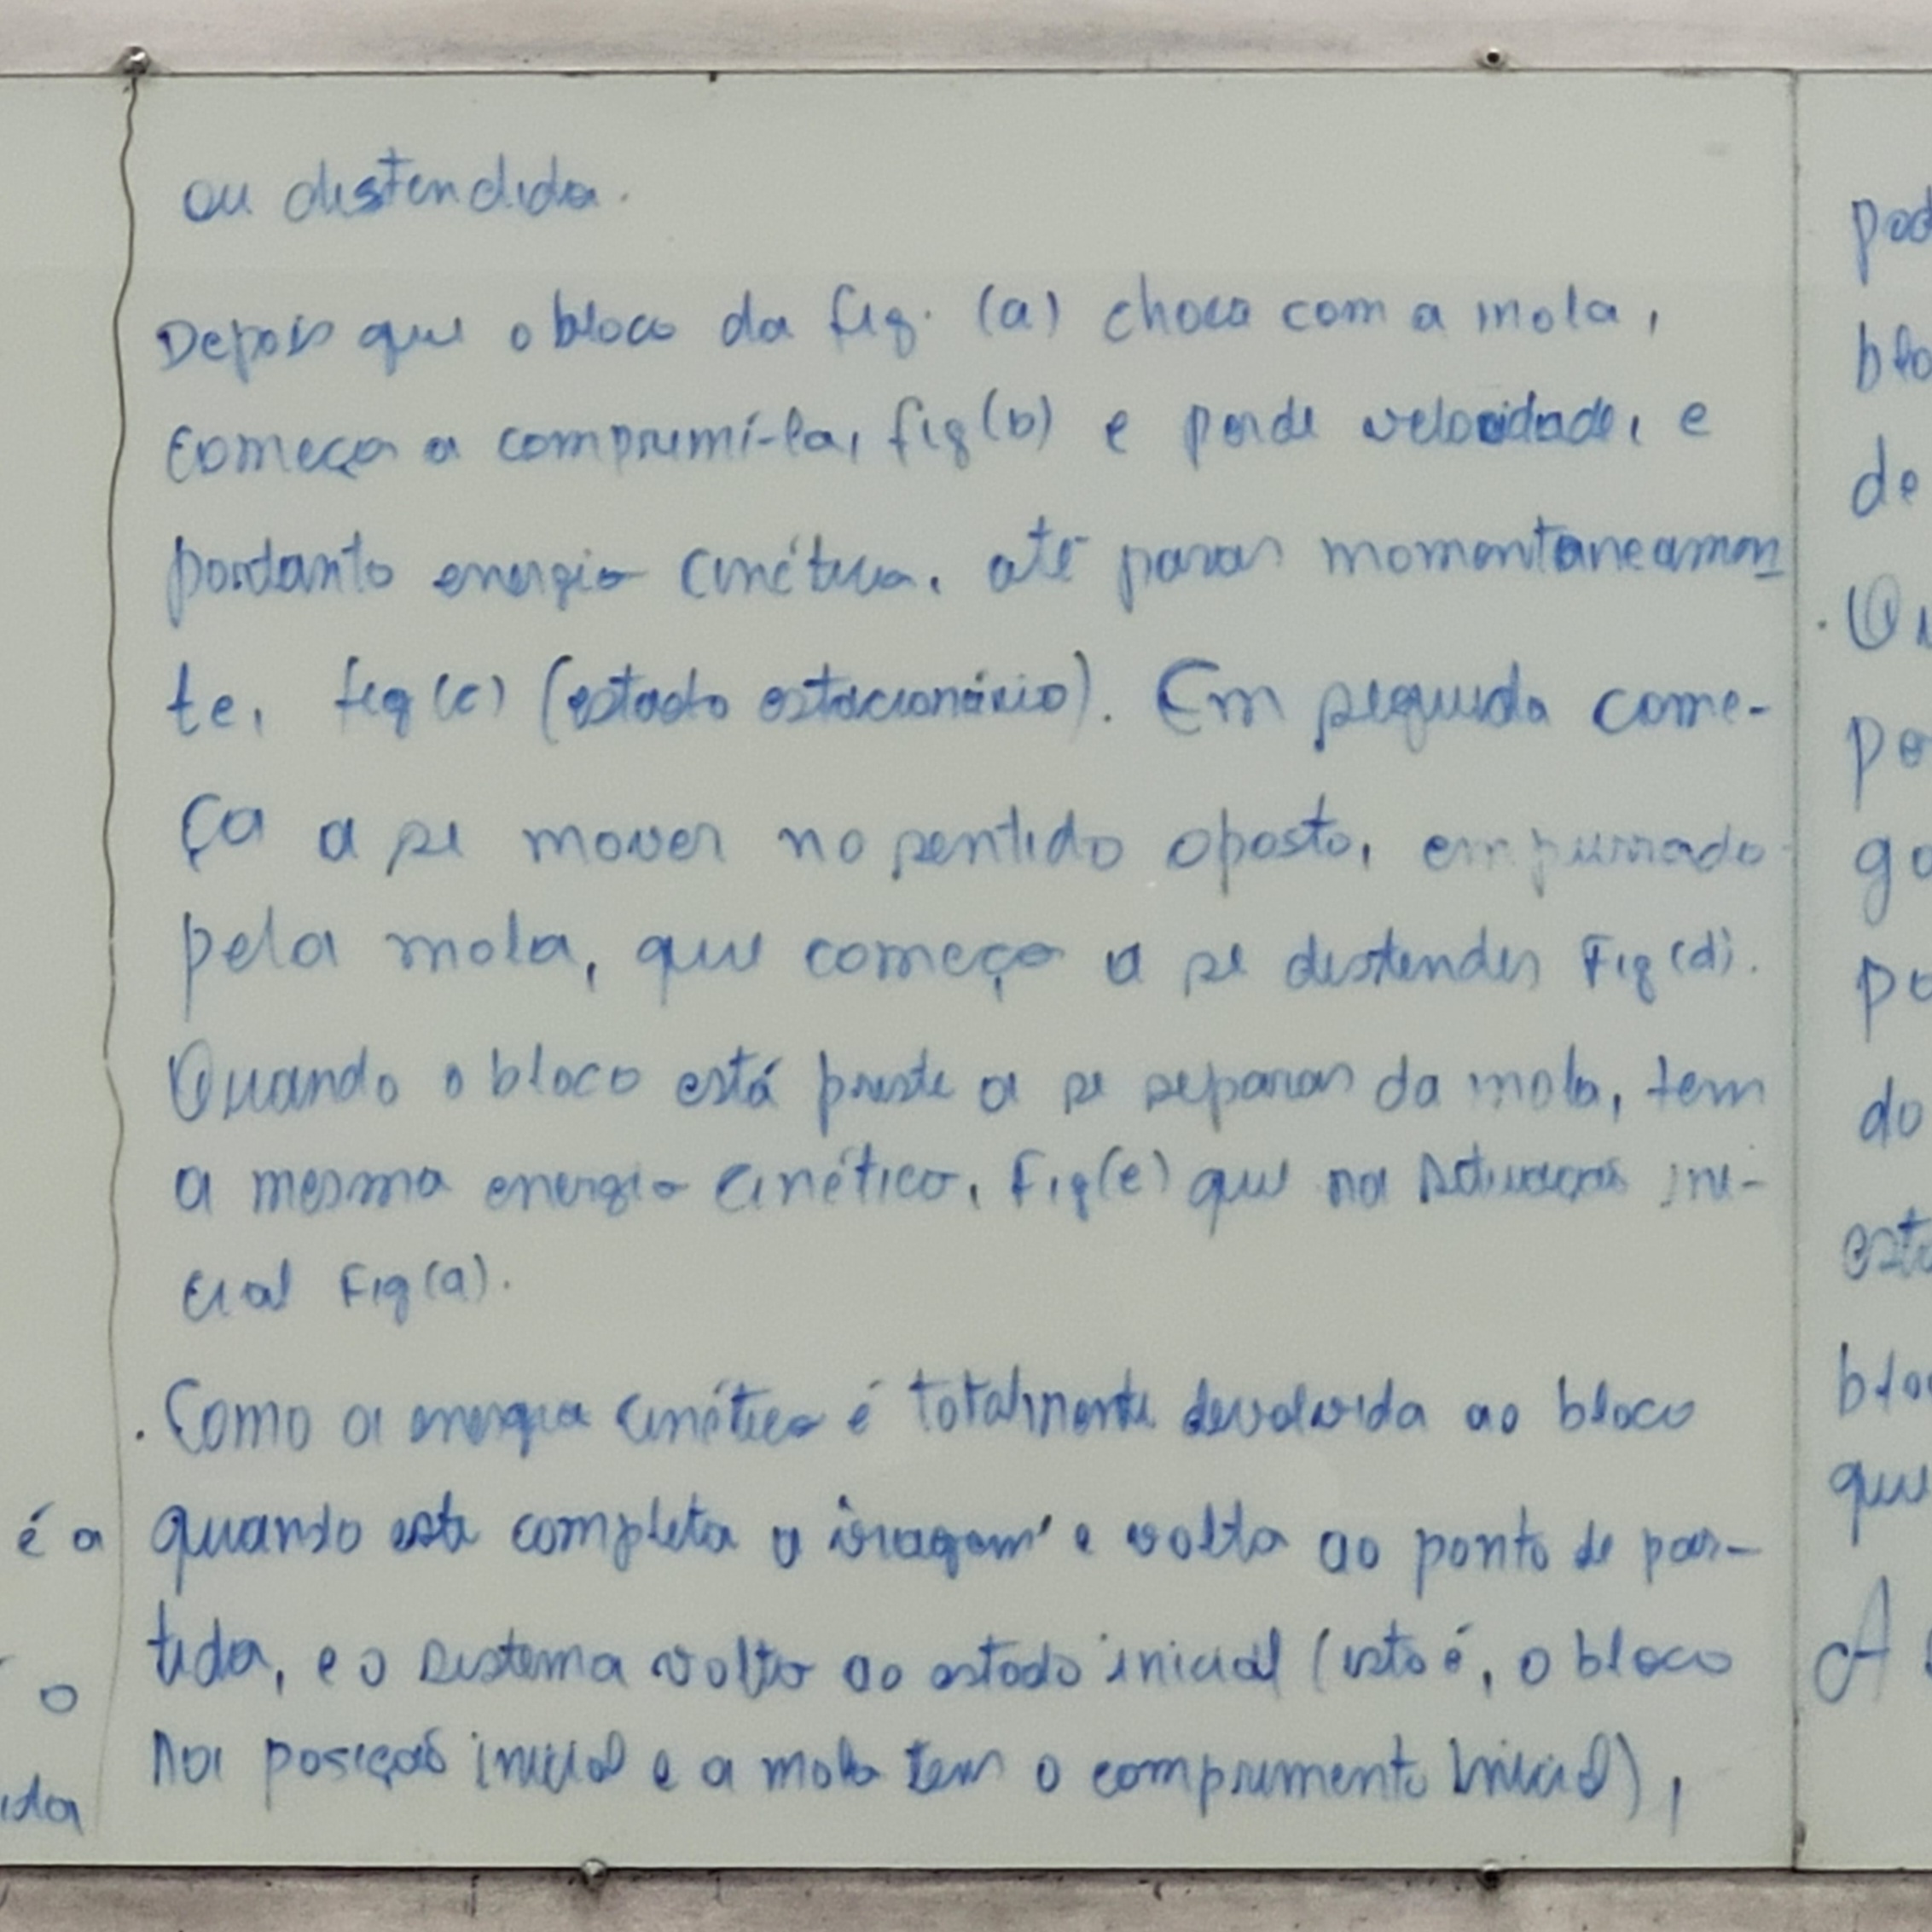 ou distendida.
Depois que o bloco da fig. (a) choca com a mola,
começa a comprimí-la, fig(b) e perde velocidade, e
portanto energia cinética, até parar momentaneamen
te, fig(c) (estado estacionário). Em seguida come-
ça a se mover no sentido oposto, empurrado
pela mola, que começa a se distender Fig(d).
Quando o bloco está preste a se separar da mola, tem
a mesma energia cinética, Fig(e) que na situação ini-
cial Fig(a).
. Como a energia cinética é totalmente devolvida ao bloco
quando este completa a viagem e volta ao ponto de par-
tida, e o sistema volta ao estado inicial (isto é, o bloco
na posição inicial e a mola tem o comprimento inicial),
é a
o
ida
pod
blo
de
po
go
po
do
esta
blo
que
A